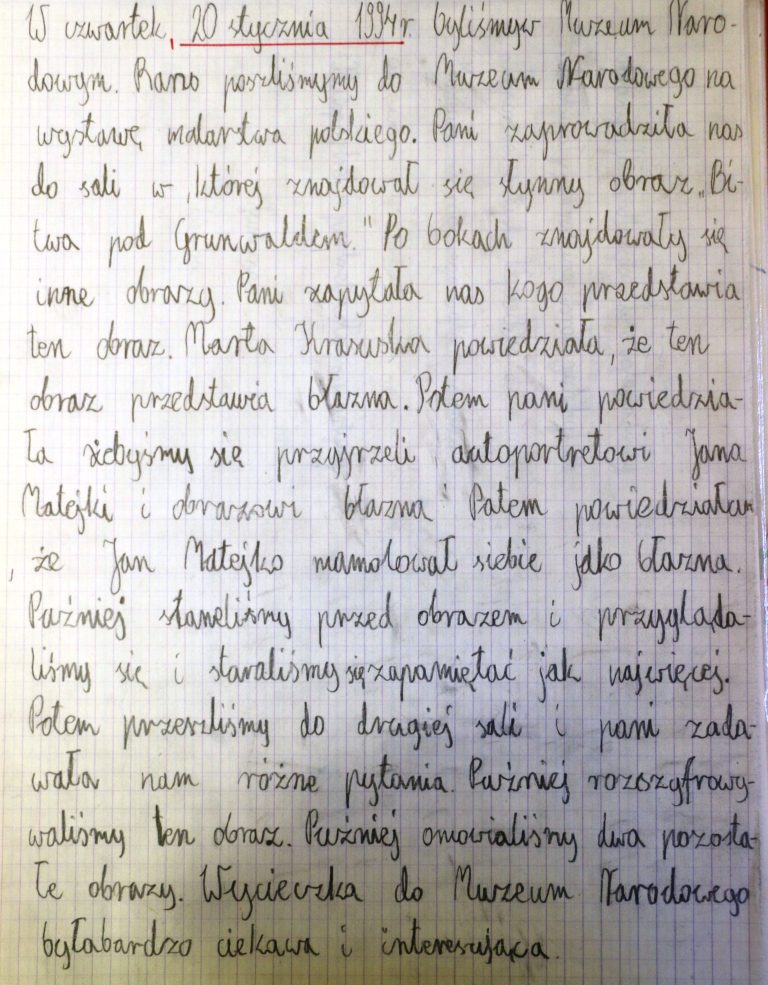 W czwartek, 20 stycznia 1994r. byliśmyw Muzeum Naro-
dowym. Rano poszliśmymy do Muzeum Narodowego na
wystawę malarstwa polskiego. Pani zaprowadziła nas
do sali w ,której znajdował się słynny obraz „Bi-
twa pod Grunwaldem." Po bokach znajdowały się
inne obrazy. Pani zapytała nas kogo przedstawia
ten obraz. Marta Krasuska powiedziała, że ten
obraz przedstawia błazna. Potem pani powiedzia-
ła żebyśmy się przyjrzeli autoportretowi Jana
Matejki i obrazowi błazna. Potem powiedziała
, że Jan Matejko namolował siebie jako błazna.
Puźniej staneliśmy przed obrazem i przygląda-
liśmy się i staraliśmy się zapamiętać jak najwięcej.
Potem przeszliśmy do drugiej sali i pani zada-
wała nam różne pytania. Puźniej rozszyfrowy-
waliśmy ten obraz. Puźniej omowialiśmy dwa pozosta-
łe obrazy. Wycieczka do Muzeum Narodowego
byłabardzo ciekawa i interesująca.